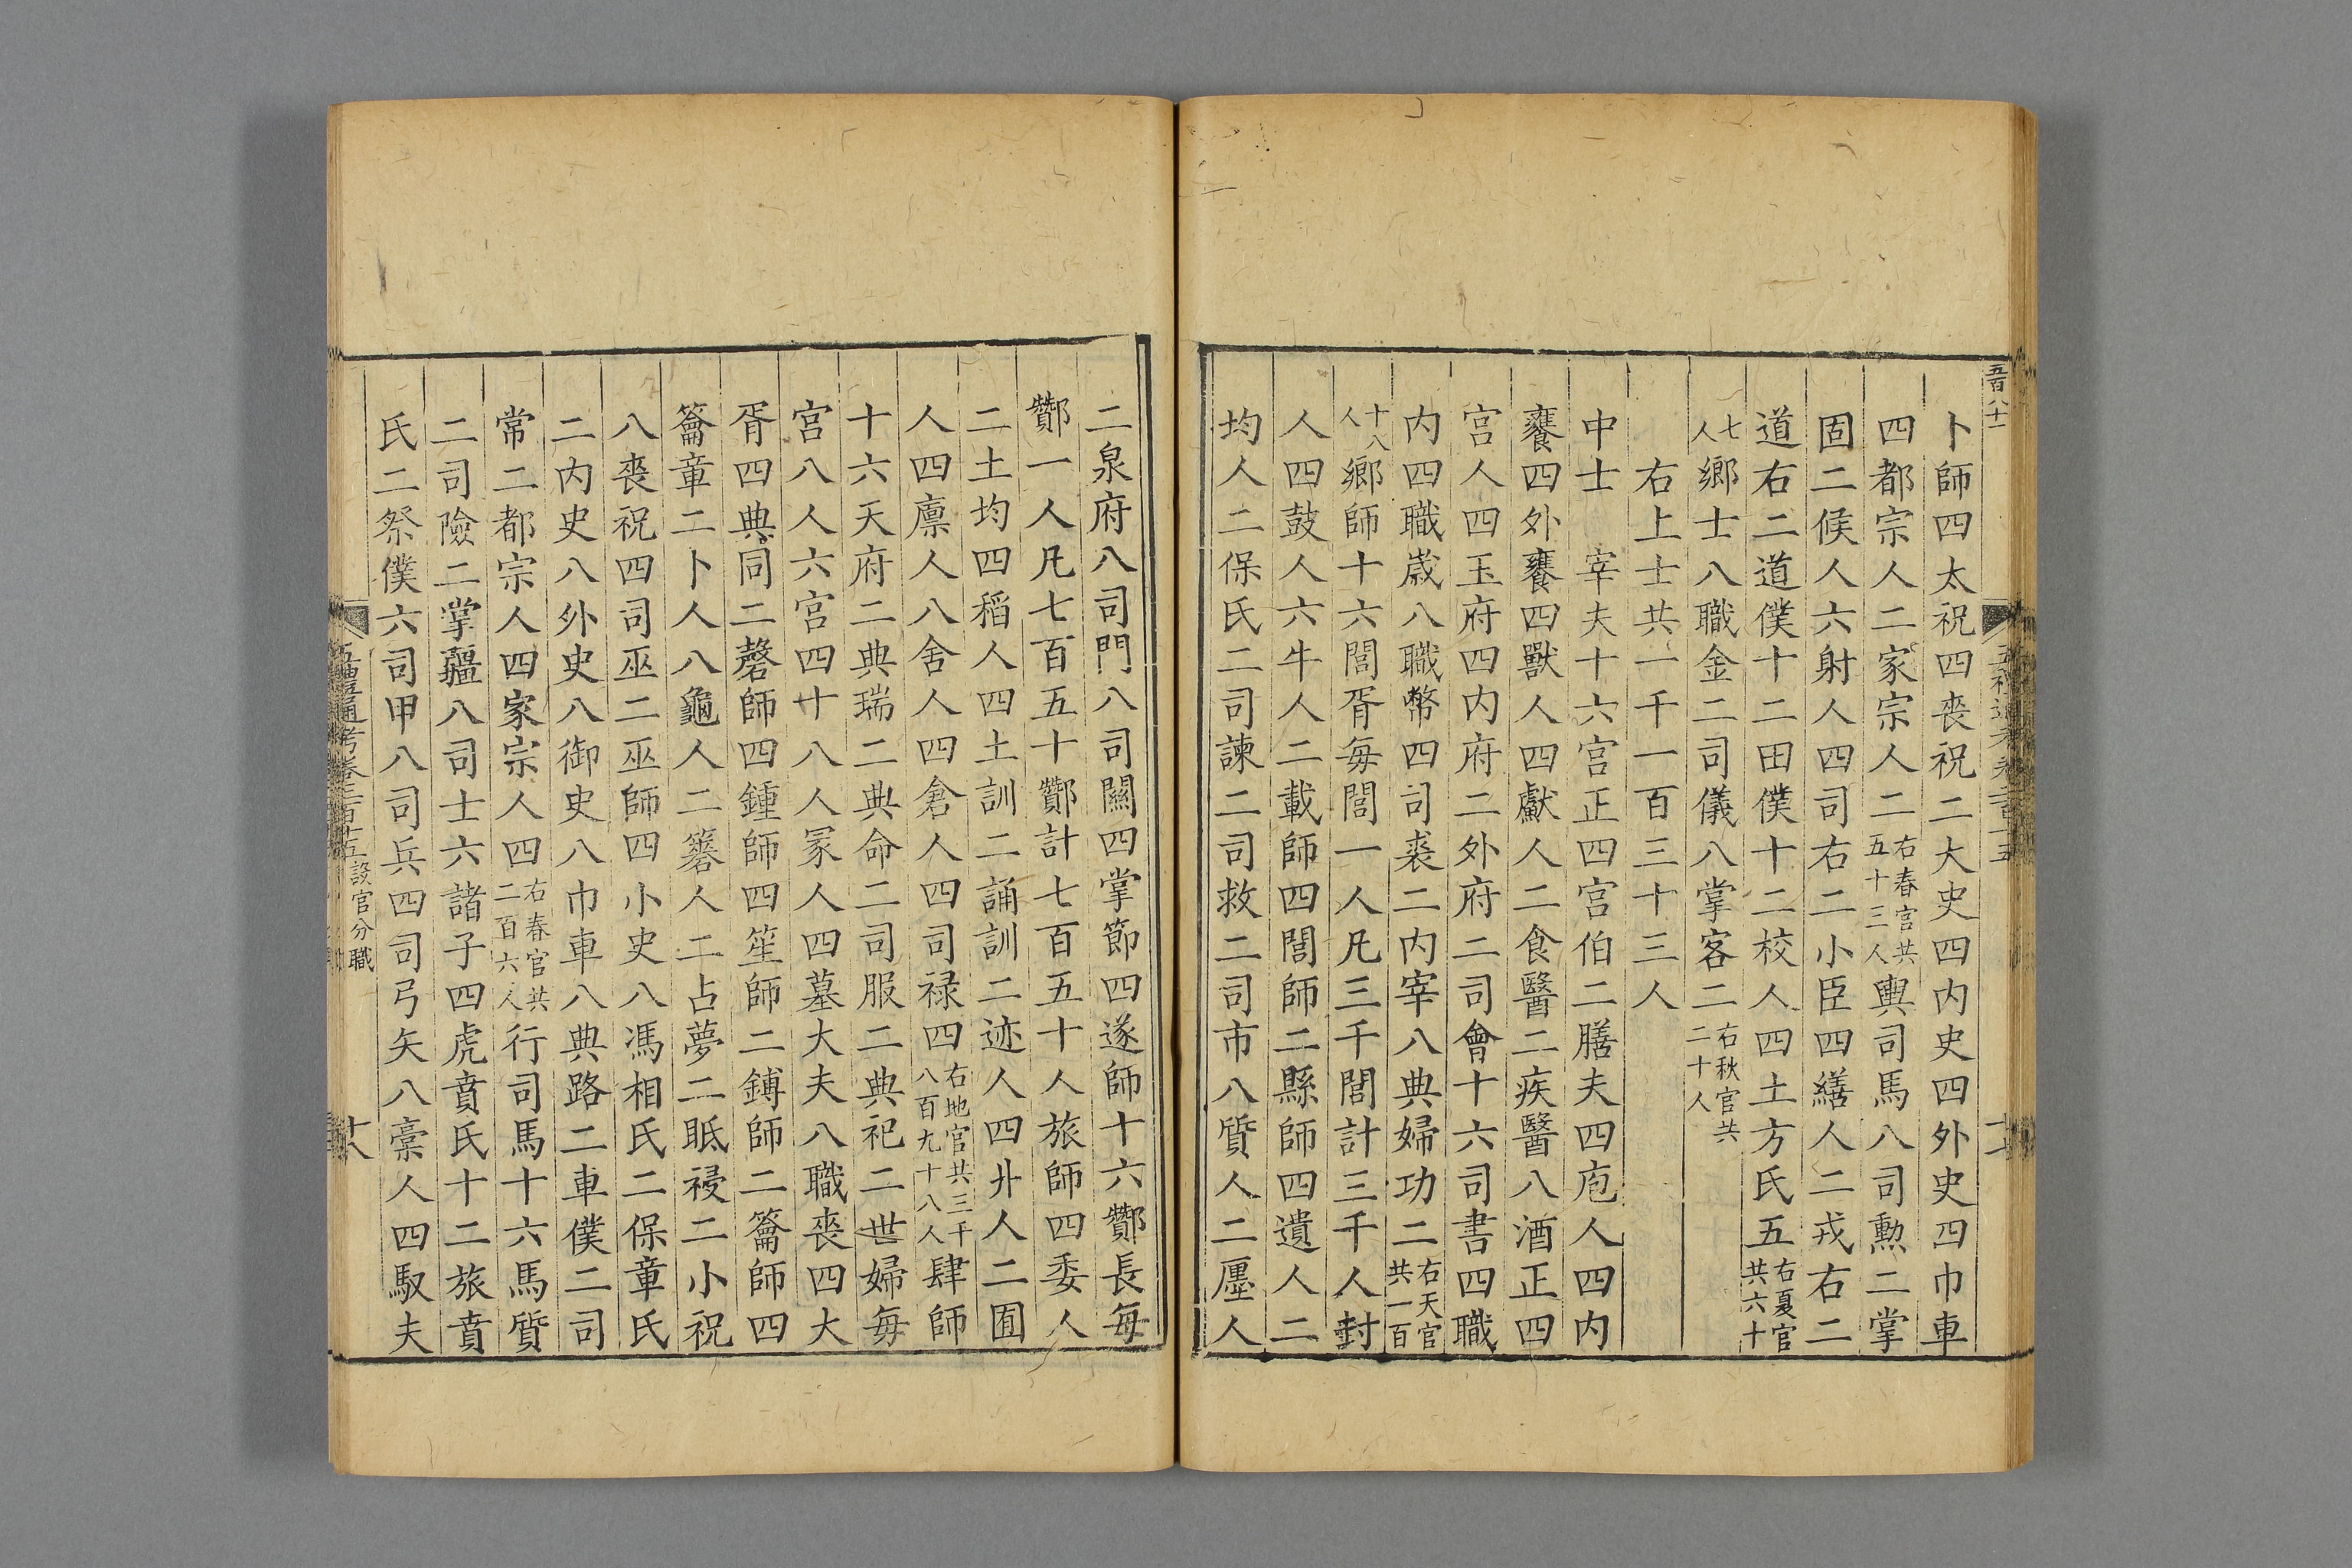 五百八十一
卜師四太祝四喪祝二大史四内史四外史四巾車
四都宗人二家宗人二右春官共五十三人輿司馬八司勳二掌
固二候人六射人四司右二小臣四繕人二戎右二
道右二道僕十二田僕十二校人四土方氏五右夏官共六十
七人鄉士八職金二司儀八掌客二右秋官共二十人
右上士共一千一百三十三人
中士　宰夫十六宮正四宮伯二膳夫四庖人四内
饔四外饔四獸人四䱷人二食醫二疾醫八酒正四
宮人四玉府四内府二外府二司會十六司書四職
内四職歲八職幣四司裘二内宰八典婦功二右天官共一百
十八人鄉師十六閭胥每閭一人凡三千閭計三千人封
人四鼓人六牛人二載師四閭師二縣師四遺人二
均人二保氏二司諫二司救二司市八質人二廛人
二泉府八司門八司關四掌節四遂師十六酇長每
酇一人凡七百五十酇計七百五十人旅師四委人
二土均四稻人四土訓二誦訓二迹人四丱人二囿
人四廩人八舍人四倉人四司禄四右地官共三千八百九十八人肆師
十六天府二典瑞二典命二司服二典祀二世婦每
宮八人六宮四十八人冢人四墓大夫八職喪四大
胥四典同二磬師四鍾師四笙師二鎛師二籥師四
籥章二卜人八龜人二簭人二占夢二眡祲二小祝
八喪祝四司巫二巫師四小史八馮相氏二保章氏
二内史八外史八御史八巾車八典路二車僕二司
常二都宗人四家宗人四右春官共二百六人行司馬十六馬質
二司險二掌疆八司士六諸子四虎賁氏十二旅賁
氏二祭僕六司甲八司兵四司弓矢八槀人四馭夫
五禮通考卷二百十五 設官分職
十八